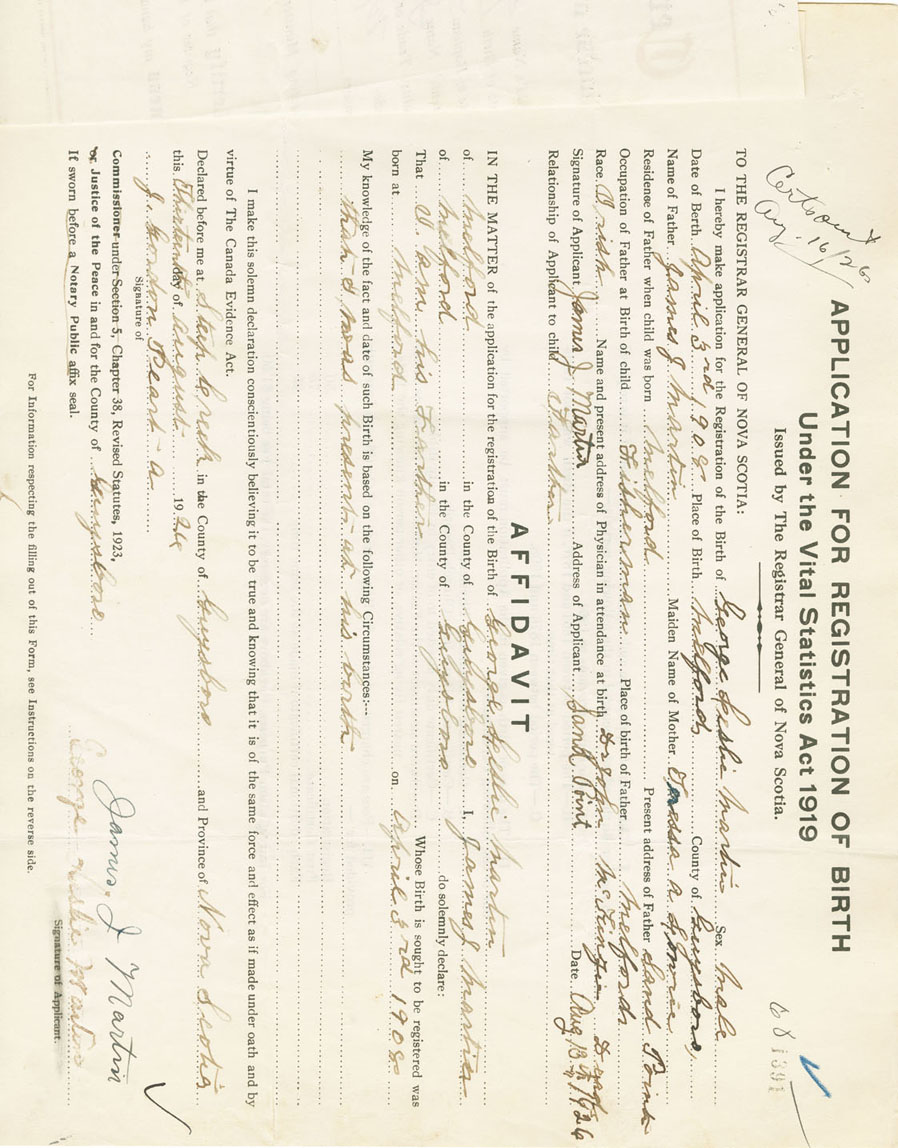 Cert sent
Aug. 16/26
681391
APPLICATION FOR REGISTRATION OF BIRTH
Under the Vital Statistics Act 1919
Issued by The Registrar General of Nova Scotia.
TO THE REGISTRAR GENERAL OF NOVA SCOTIA:
I hereby make application for the Registration of the Birth of George Leslie Martin Sex Male
Date of Berth April 3rd 1908 Place of Birth Melford County of Guysboro
Name of Father James J Martin Maiden Name of Mother A
Residence of Father when child was born Melford Present address of Father Sand Point
Occupation of Father at Birth of child Fisherman Place of birth of Father Melford
Race Irish Name and present address of Physician in attendance at birth Dr John
Signature of Applicant James J Martin Address of Applicant Sand Point Date Aug 13th 1926
Relationship of Applicant to child Father
AFFIDAVIT
IN THE MATTER of the application for the registration of the Birth of George Leslie Martin
of Melford in the County of Guysboro I, James J Martin
of Melford in the County of Guysboro do solemnly declare:
That I am his Father Whose Birth is sought to be registered was
born at Melford on April 3rd 1908
My knowledge of the fact and date of such Birth is based on the following Circumstances:—
that I was present at his birth
I make this solemn declaration conscientiously believing it to be true and knowing that it is of the same force and effect as if made under oath and by
virtue of The Canada Evidence Act.
Declared before me at in the County of Guysboro and Province of Nova Scotia
this thirteenth day of August 1926
J. Peart
Signature of
James. J Martin
George Leslie Martin
Signature of Applicant.
Commissioner under Section 5, Chapter 38, Revised Statutes, 1923,
or Justice of the Peace in and for the County of Guysboro
If sworn before a Notary Public affix seal.
For Information respecting the filling out of this Form, see Instructions on the reverse side.